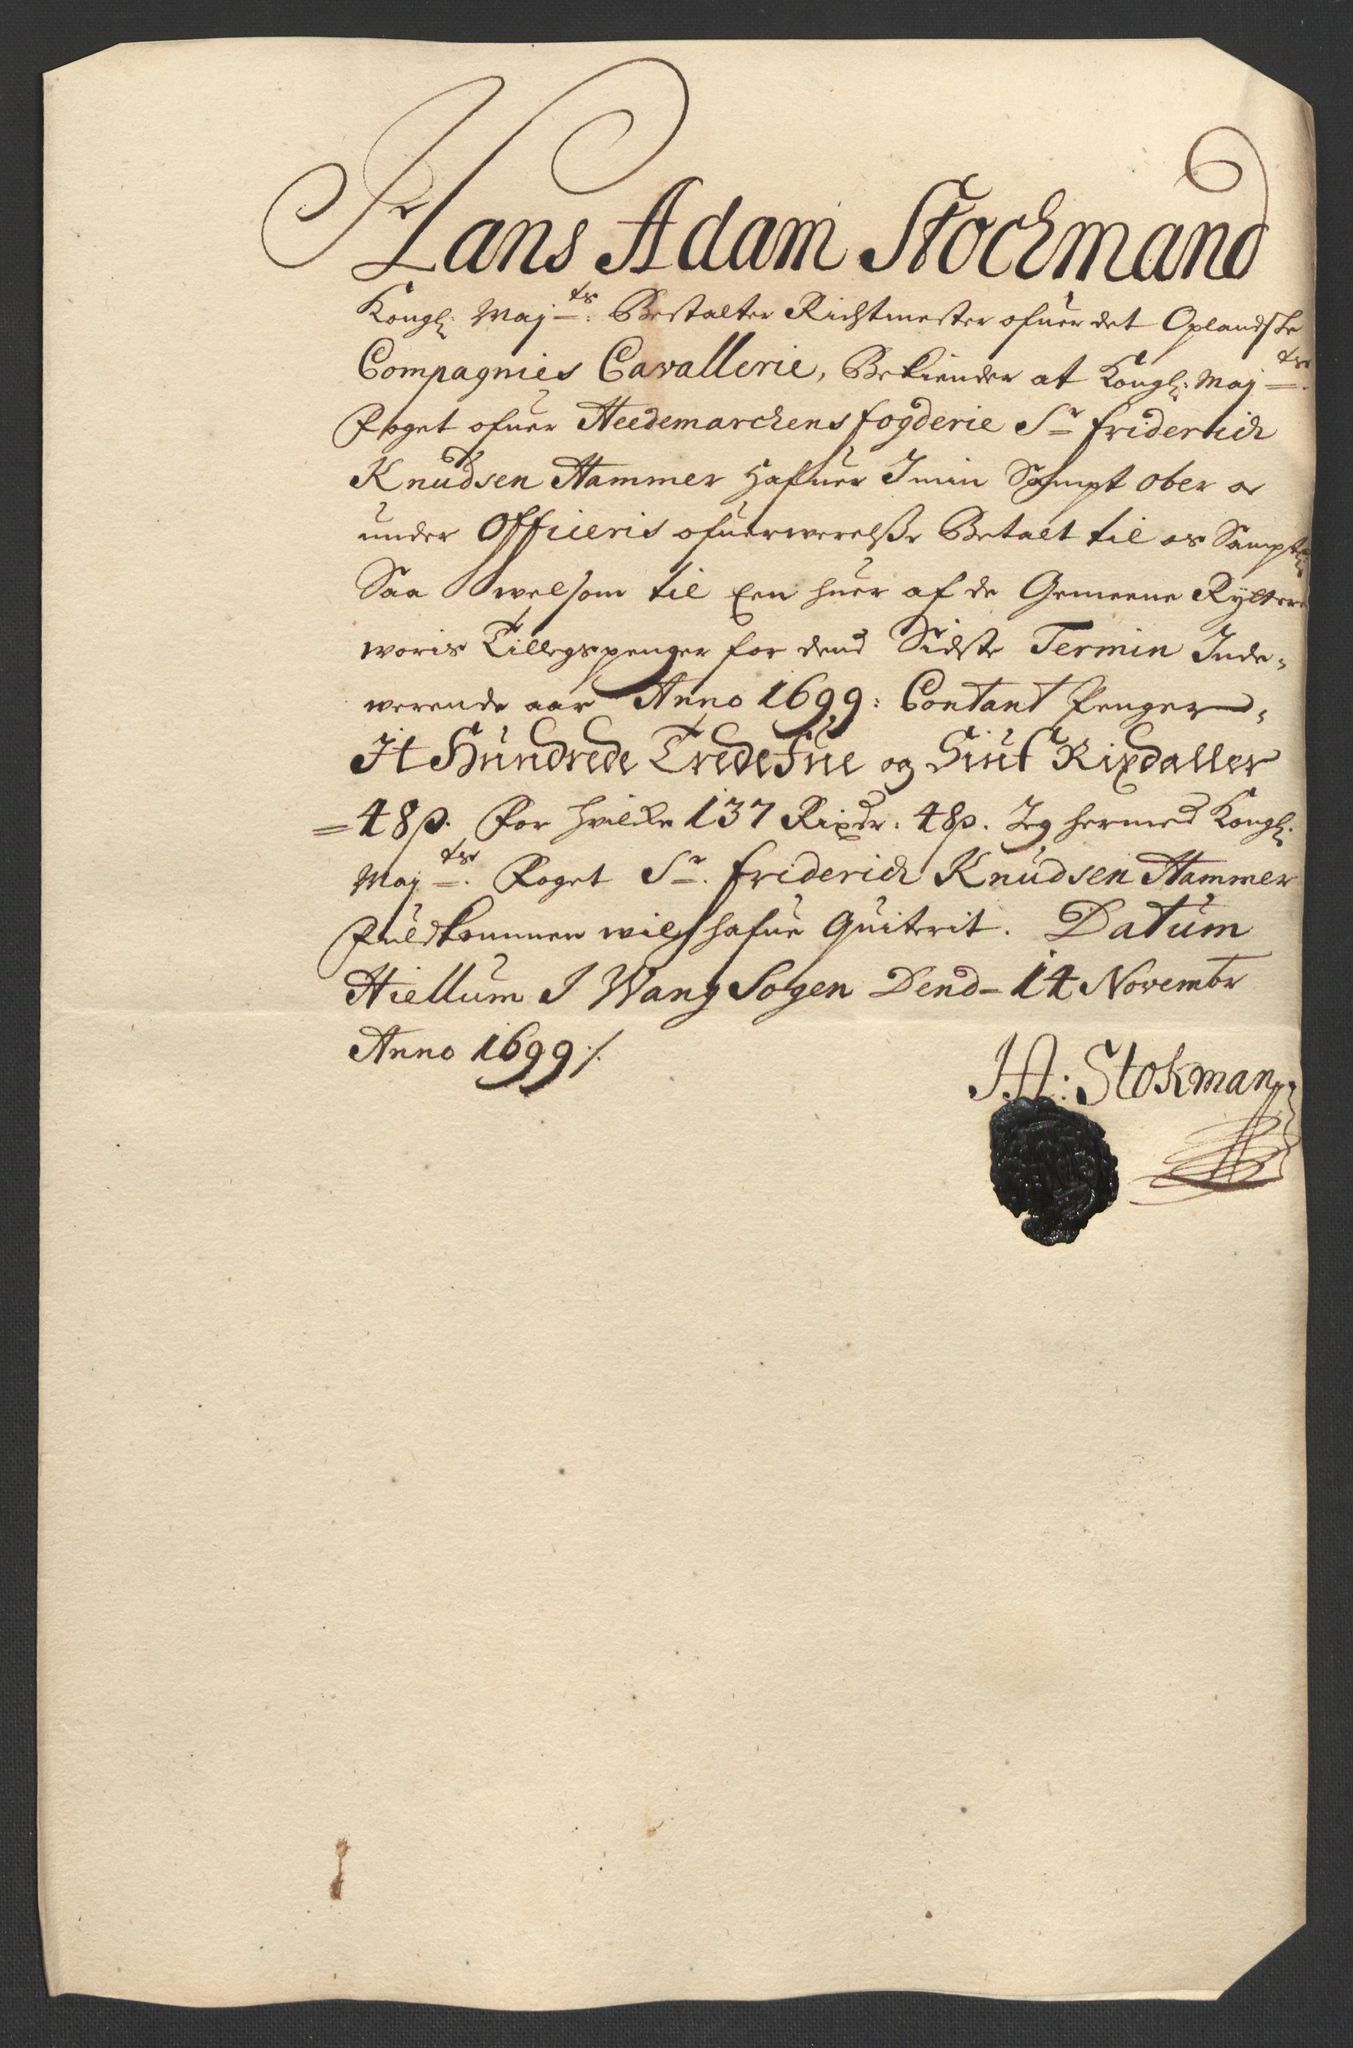 Hans Adam Stochmand
Kongl: Maj:ts: Bestalter Richtmester ofuer det Oplandske
Compagnies Cavallerie, Bekiender at Kongl: Maj:ts
Foget ofuer Heedemarchens fogderie Sr friderich
Knudsen Hammer Hafuer I min Sampt ober oc
under Officeris ofuerwerelsße Betalt til os Sampt
Saa welsom til Een huer af de Gemeene Rytter
woris Tillegspenger for dend Sidste Termin Inde-
werende aar Anno 1699: Contant Penger
It Hundrede Tredefue og Siuf Rixdaller
48β. For hvilcke 137 Rixdr. 48β. Jeg hermed Kongl:
Maj:ts. Foget Sr. friderich Knudsen Hammer
fuldkommen wil hafue Quiterit. Datum
Hiellum I Wang Sogen Dend 14 Novembr
Anno 1699 ⁒
HA: Stokman